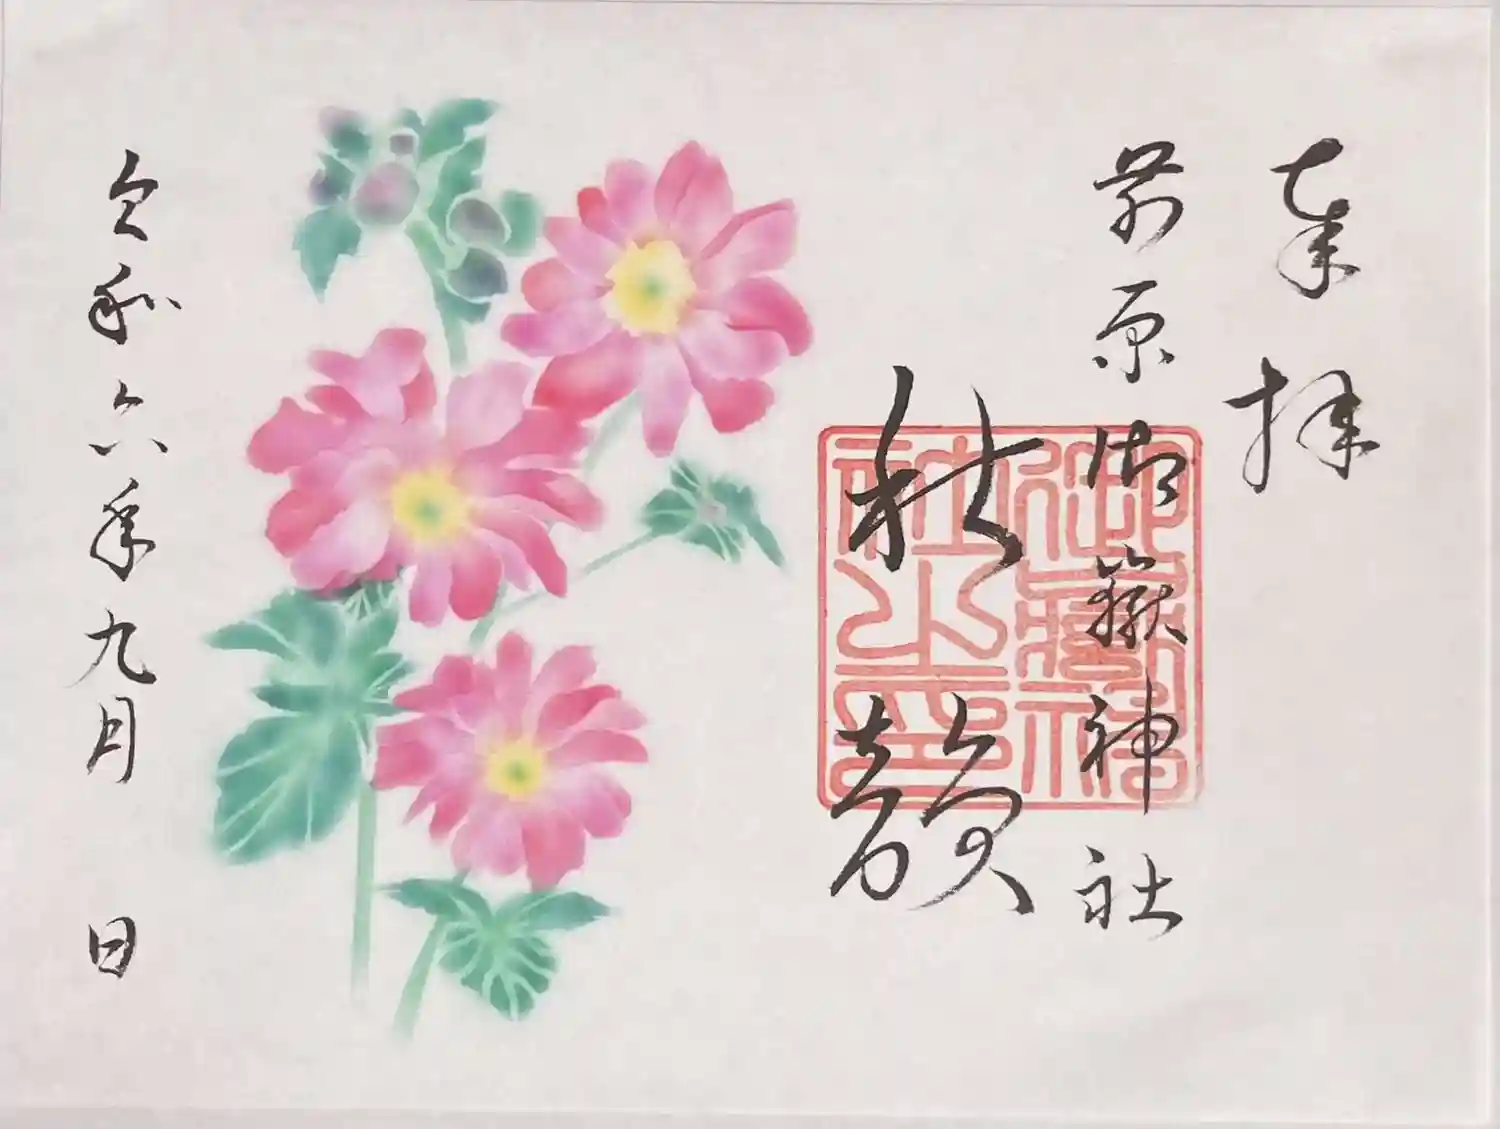 奉拝
前原御嶽神社
秋韻
御嶽神
社之印
令和六年九月 日